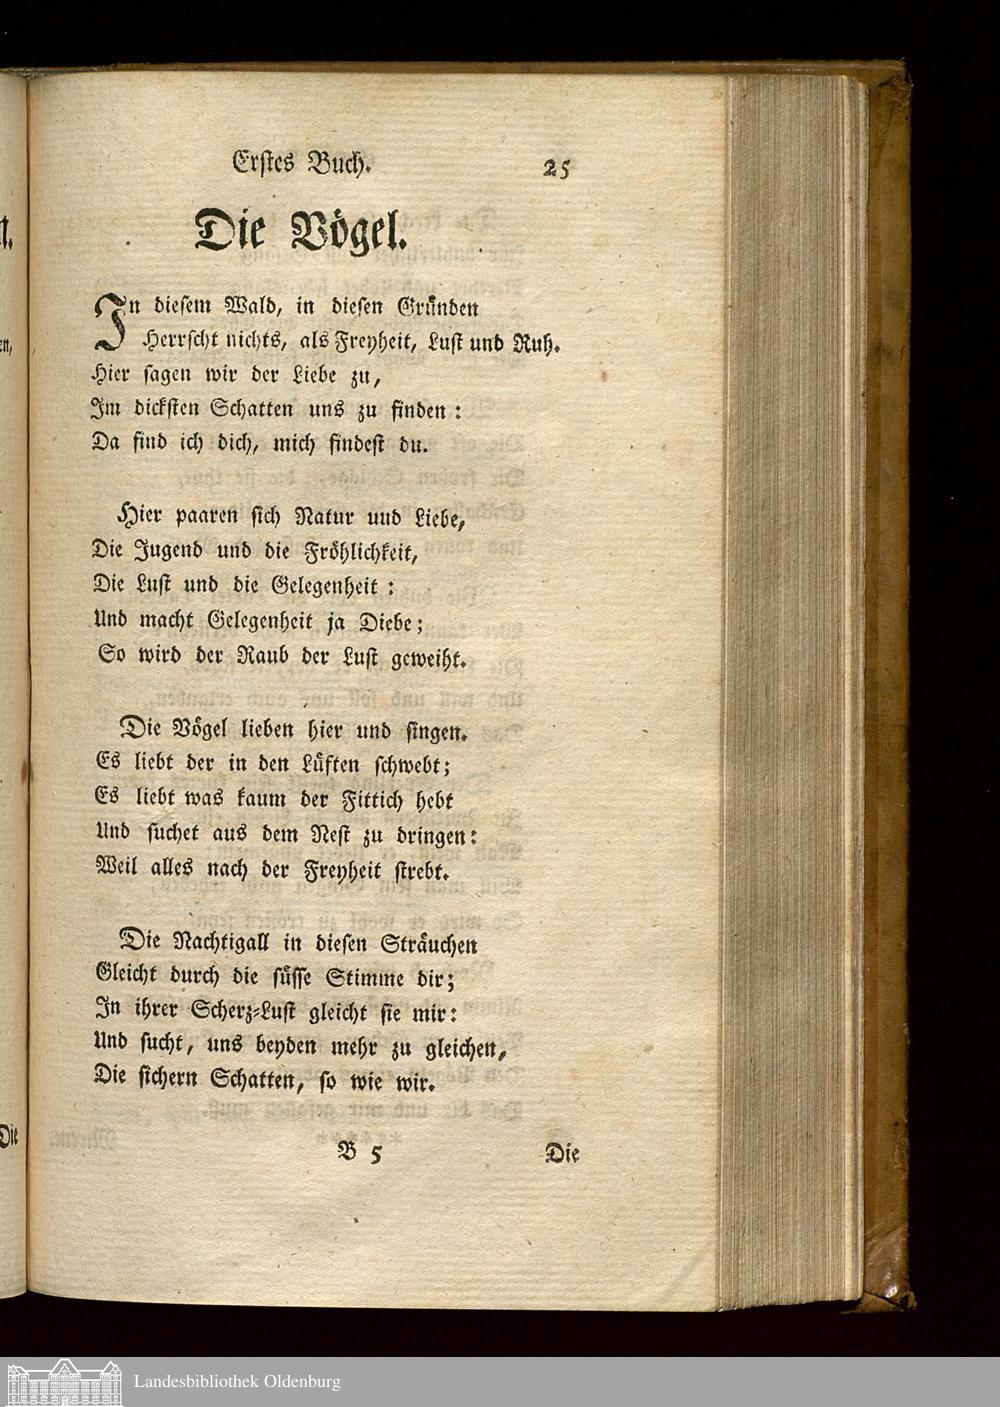 Erstes Buch. 25
Die Vögel.
In diesem Wald, in diesen Gründen
Herrscht nichts, als Freyheit, Lust und Ruh.
Hier sagen wir der Liebe zu,
Im dicksten Schatten uns zu finden:
Da find ich dich, mich findest du.
Hier paaren sich Natur und Liebe,
Die Jugend und die Fröhlichkeit,
Die Lust und die Gelegenheit:
Und macht Gelegenheit ja Diebe;
So wird der Raub der Lust geweiht.
Die Vögel lieben hier und singen.
Es liebt der in den Lüften schwebt;
Es liebt was kaum der Fittich hebt
Und suchet aus dem Nest zu dringen:
Weil alles nach der Freyheit strebt.
Die Nachtigall in diesen Sträuchen
Gleicht durch die süsse Stimme dir;
In ihrer Scherz-Lust gleicht sie mir:
Und sucht, uns beyden mehr zu gleichen,
Die sichern Schatten, so wie wir.
B 5 Die
Die
Landesbibliothek Oldenburg